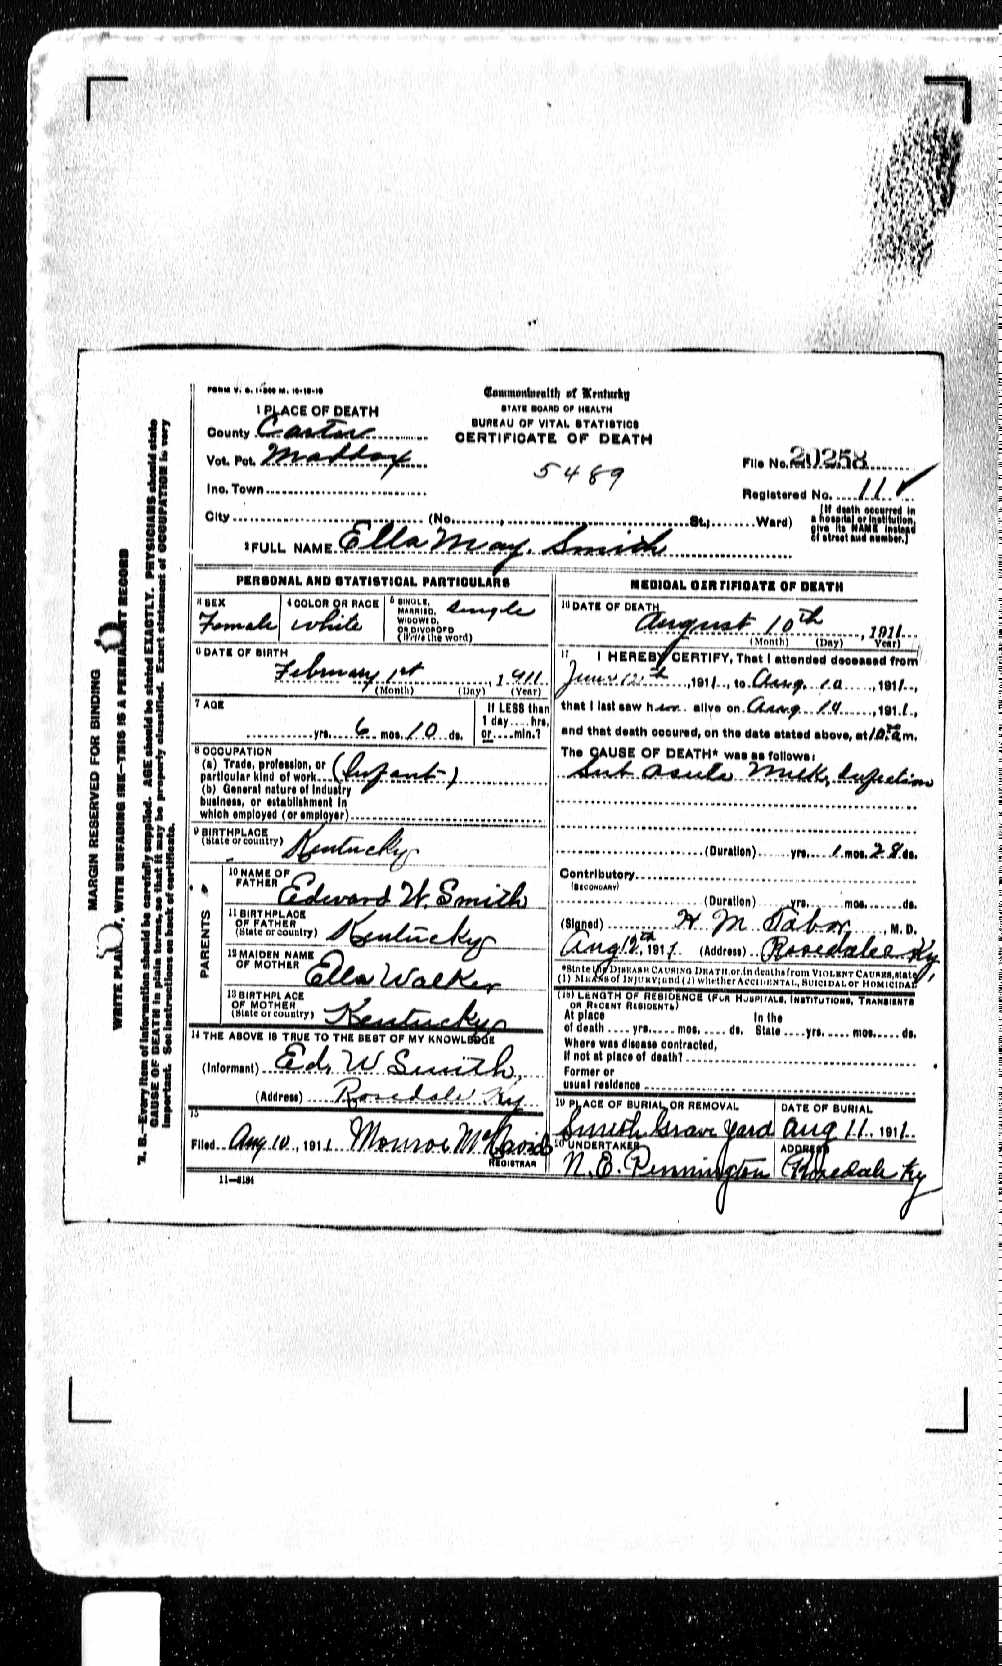 FORM V. S. 1-500 M. 10-18-10
Commonwealth of Kentucky
STATE BOARD OF HEALTH
BUREAU OF VITAL STATISTICS
CERTIFICATE OF DEATH
1 PLACE OF DEATH
County Carter
Vot. Pct. Maddox
Inc. Town
City (No. , St.; Ward)
5489
File No. 20258
Registered No. 11 ✓
[If death occurred in
a hospital or institution,
give its NAME instead
of street and number.]
2 FULL NAME Ella May. Smith
PERSONAL AND STATISTICAL PARTICULARS
3 SEX
Female
4 COLOR OR RACE
White
5 SINGLE,
MARRIED,
WIDOWED,
OR DIVORCED
(Write the word)
Single
6 DATE OF BIRTH
February 1st, 1911
(Month) (Day) (Year)
7 AGE
yrs. 6 mos. 10 ds.
If LESS than
1 day.... hrs.
or....min.?
8 OCCUPATION
(a) Trade, profession, or
particular kind of work (Infant)
(b) General nature of Industry
business, or establishment in
which employed (or employer)
9 BIRTHPLACE
(State or country) Kentucky
PARENTS
10 NAME OF
FATHER Edward W. Smith
11 BIRTHPLACE
OF FATHER
(State or country) Kentucky
12 MAIDEN NAME
OF MOTHER Ella Walker
13 BIRTHPLACE
OF MOTHER
(State or country) Kentucky
14 THE ABOVE IS TRUE TO THE BEST OF MY KNOWLEDGE
(Informant) Ed. W Smith
(Address) Rosedale Ky
15
Filed Aug 10, 1911 Monroe McDavid
REGISTRAR
11-8184
MEDICAL CERTIFICATE OF DEATH
16 DATE OF DEATH
August 10th, 1911
(Month) (Day) Year)
17 I HEREBY CERTIFY, That I attended deceased from
June 12th, 1911, to Aug. 10, 191..,
that I last saw h alive on Aug 10, 1911,
and that death occured, on the date stated above, at 10 m.
The CAUSE OF DEATH* was as follows:
Sub Milk, Infection
(Duration) yrs. 1 mos. 28 ds.
Contributory
(SECONDARY)
(Duration) yrs. mos. ds.
(Signed) H. M. Tabor, M. D.
Aug 12th, 1911 (Address) Rosedale Ky,
*State the DISEASE CAUSING DEATH, or, in deaths from VIOLENT CAUSES, state
(1) MEANS OF INJURY; and (2) whether ACCIDENTAL, SUICIDAL or HOMICIDAL
(18) LENGTH OF RESIDENCE (FOR HOSPITALS, INSTITUTIONS, TRANSIENTS
OR RECENT RESIDENTS)
At place In the
of death .... yrs. mos. ds. State .... yrs. mos. ds.
Where was disease contracted,
If not at place of death?
Former or
usual residence
19 PLACE OF BURIAL OR REMOVAL
Smith Grave Yard
DATE OF BURIAL
Aug 11, 1911
20 UNDERTAKER
N. E. Pennington
ADDRESS
Rosedale Ky
MARGIN RESERVED FOR BINDING
WRITE PLAINLY, WITH UNFADING INK—THIS IS A PERMANENT RECORD
N. B.—Every item of information should be carefully supplied. AGE should be stated EXACTLY. PHYSICIANS should state
CAUSE OF DEATH in plain terms, so that it may be properly classified. Exact statement of OCCUPATION is very
important. See instructions on back of certificate.